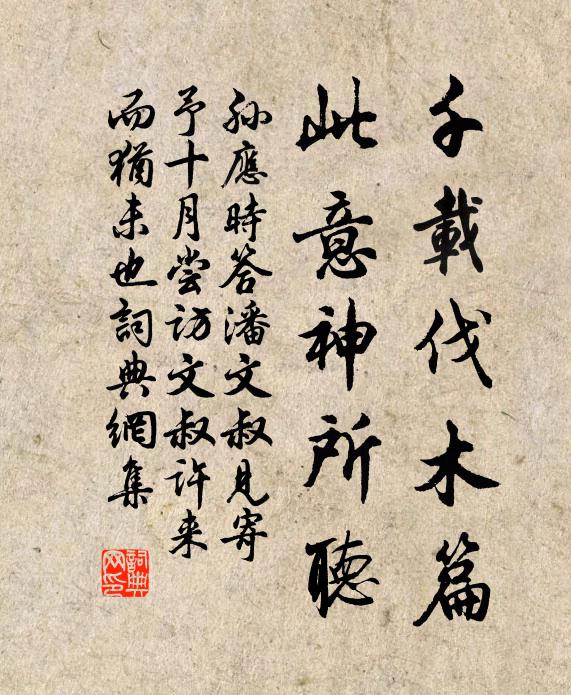 千載伐木篇
此意神所聽
孫應時答潘文叔見寄
予十月嘗訪文叔許来
而猶未也詞典網集
詞典
网印